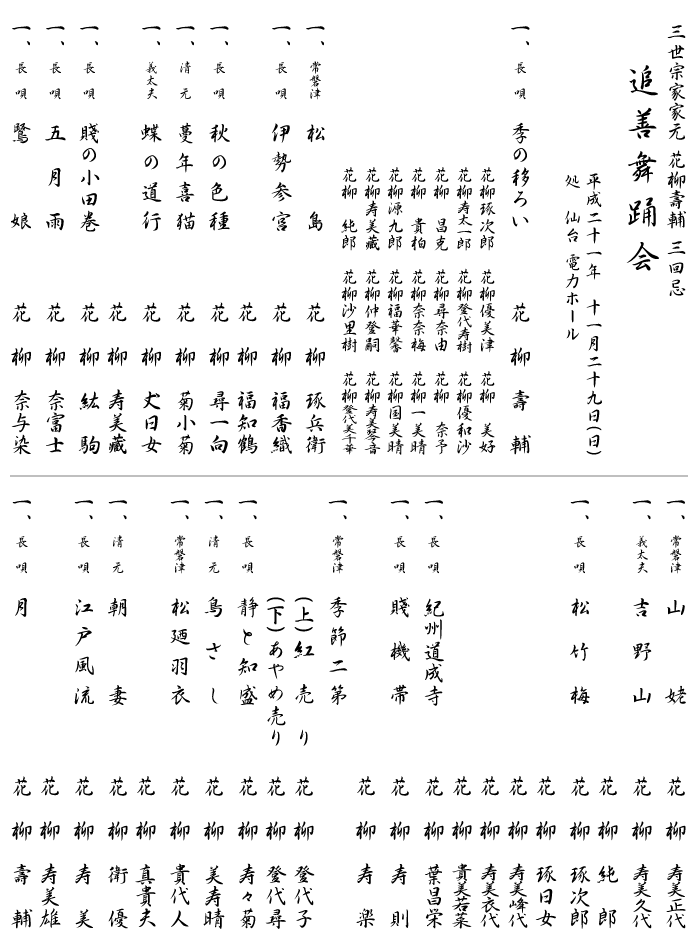 三世宗家家元 花柳壽輔 三回忌
追善舞踊会
平成二十一年 十一月二十九日(日)
処 仙台 電力ホール
一、長唄 季の移ろい 花柳壽輔
花柳琢次郎 花柳優美津 花柳 美好
花柳寿太一郎 花柳登代寿樹 花柳優和沙
花柳 昌克 花柳尋奈由 花柳 奈予
花柳 貴柏 花柳奈奈梅 花柳一美晴
花柳源九郎 花柳福華馨 花柳国美晴
花柳寿美蔵 花柳仲登嗣 花柳寿美琴音
花柳 純郎 花柳沙里樹 花柳登代美千華
一、常磐津 松島 花柳琢兵衛
一、長唄 伊勢参宮 花柳福香織
花柳福知鶴
一、長唄 秋の色種 花柳尋一向
一、清元 蔓年喜猫 花柳菊小菊
一、義太夫 蝶の道行 花柳丈日女
花柳寿美蔵
一、長唄 賤の小田巻 花柳紘駒
一、長唄 五月雨 花柳奈富士
一、長唄 鷺娘 花柳奈与染
一、常磐津 山姥 花柳寿美正代
一、義太夫 吉野山 花柳寿美久代
花柳純郎
一、長唄 松竹梅 花柳琢次郎
花柳琢日女
花柳寿美峰代
花柳寿美衣代
花柳貴美若菜
一、長唄 紀州道成寺 花柳葉昌栄
一、長唄 賤機帯 花柳寿則
花柳寿楽
一、常磐津 季節二第
(上)紅売り 花柳登代子
(下)あやめ売り 花柳登代尋
一、長唄 静と知盛 花柳寿々菊
一、清元 鳥さし 花柳美寿晴
一、常磐津 松廼羽衣 花柳貴代人
花柳真貴夫
一、清元 朝妻 花柳衛優
一、長唄 江戸風流 花柳寿美
花柳寿美雄
一、長唄 月 花柳壽輔